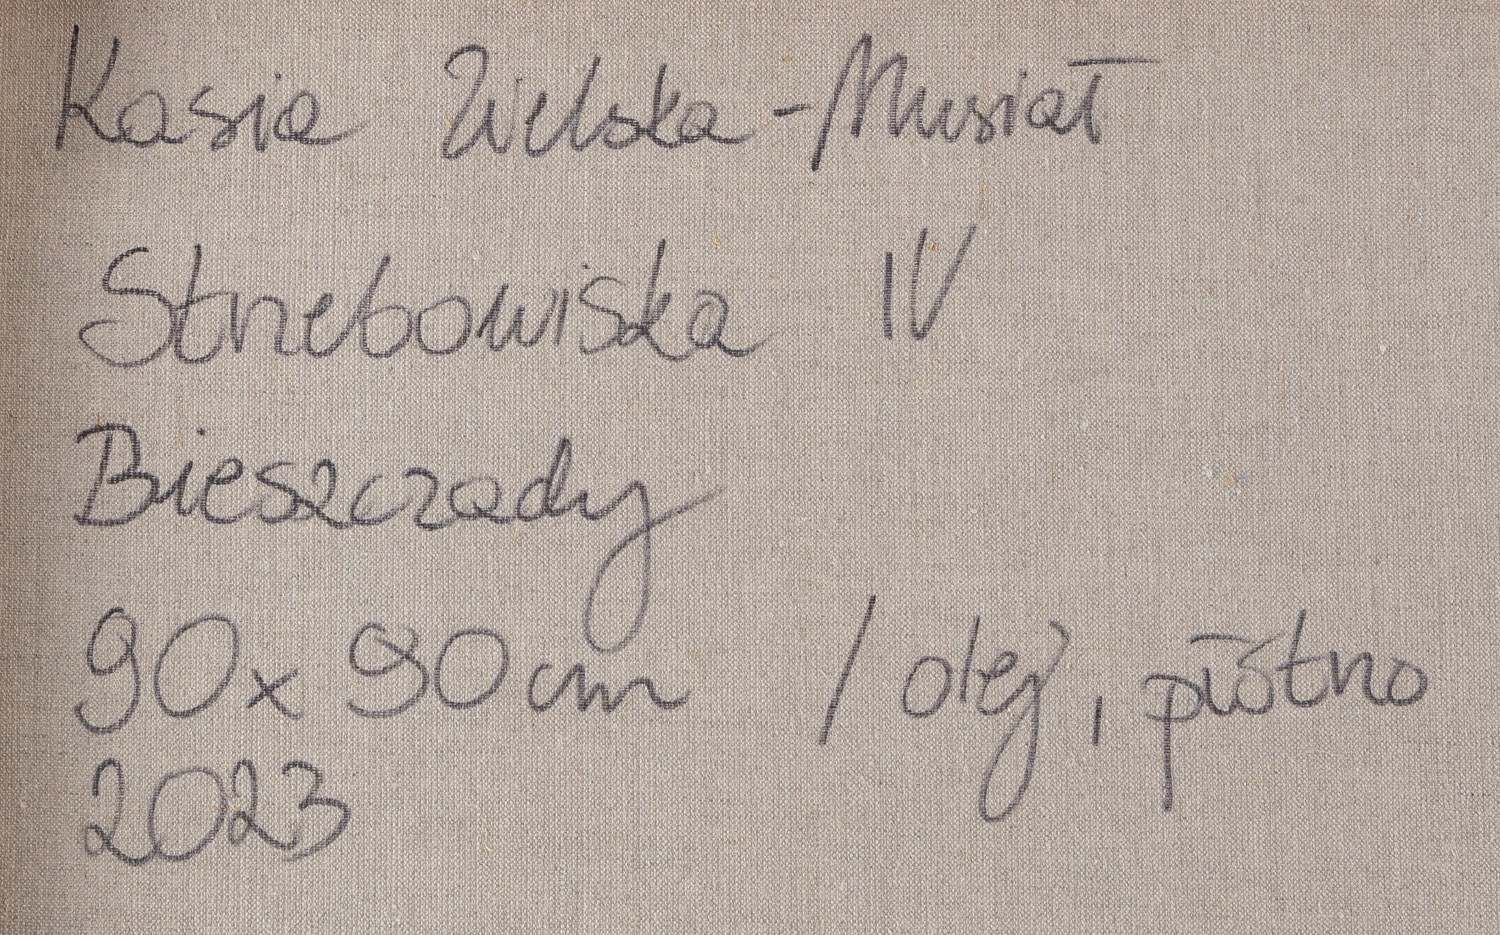 Kasia Wilska - Musiał
Strzebowiska IV
Bieszczady
90x90cm / olej, płótno
2023